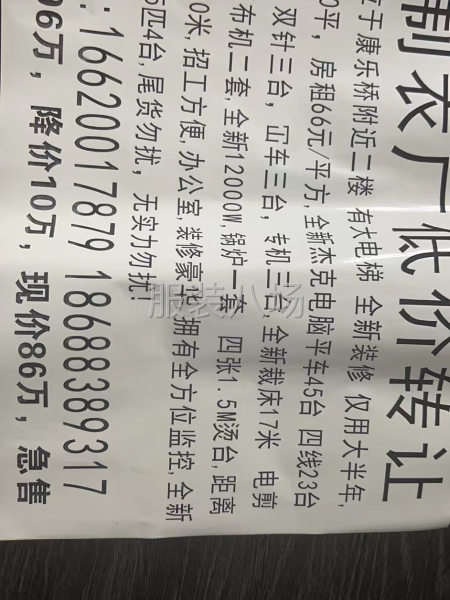 制衣厂低价转让
位于康乐桥附近二楼 有大电梯 全新装修 仅用大半年,
0平，房租66元/平方,全新杰克电脑平车45台 四线23台
双针三台，冚车三台，专机三台 全新裁床17米 电剪
布机二套,全新12000W,锅炉一套 四张1.5M烫台,距离
0米,招工方便,办公室,装修豪华,拥有全方位监控,全新
5匹4台,尾货勿扰，无实力勿扰！
: 16620017879 18688389317
96万，降价10万，现价86万，急售
服装八场